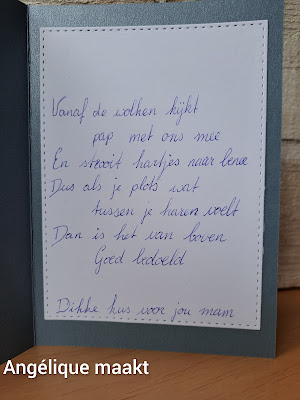 Vanaf de wolken kijkt
pap met ons mee
En strooit hartjes naar benee
Dus als je plots wat
tussen je haren voelt
Dan is het van boven
Goed bedoeld
Dikke kus voor jou mam
Angélique maakt